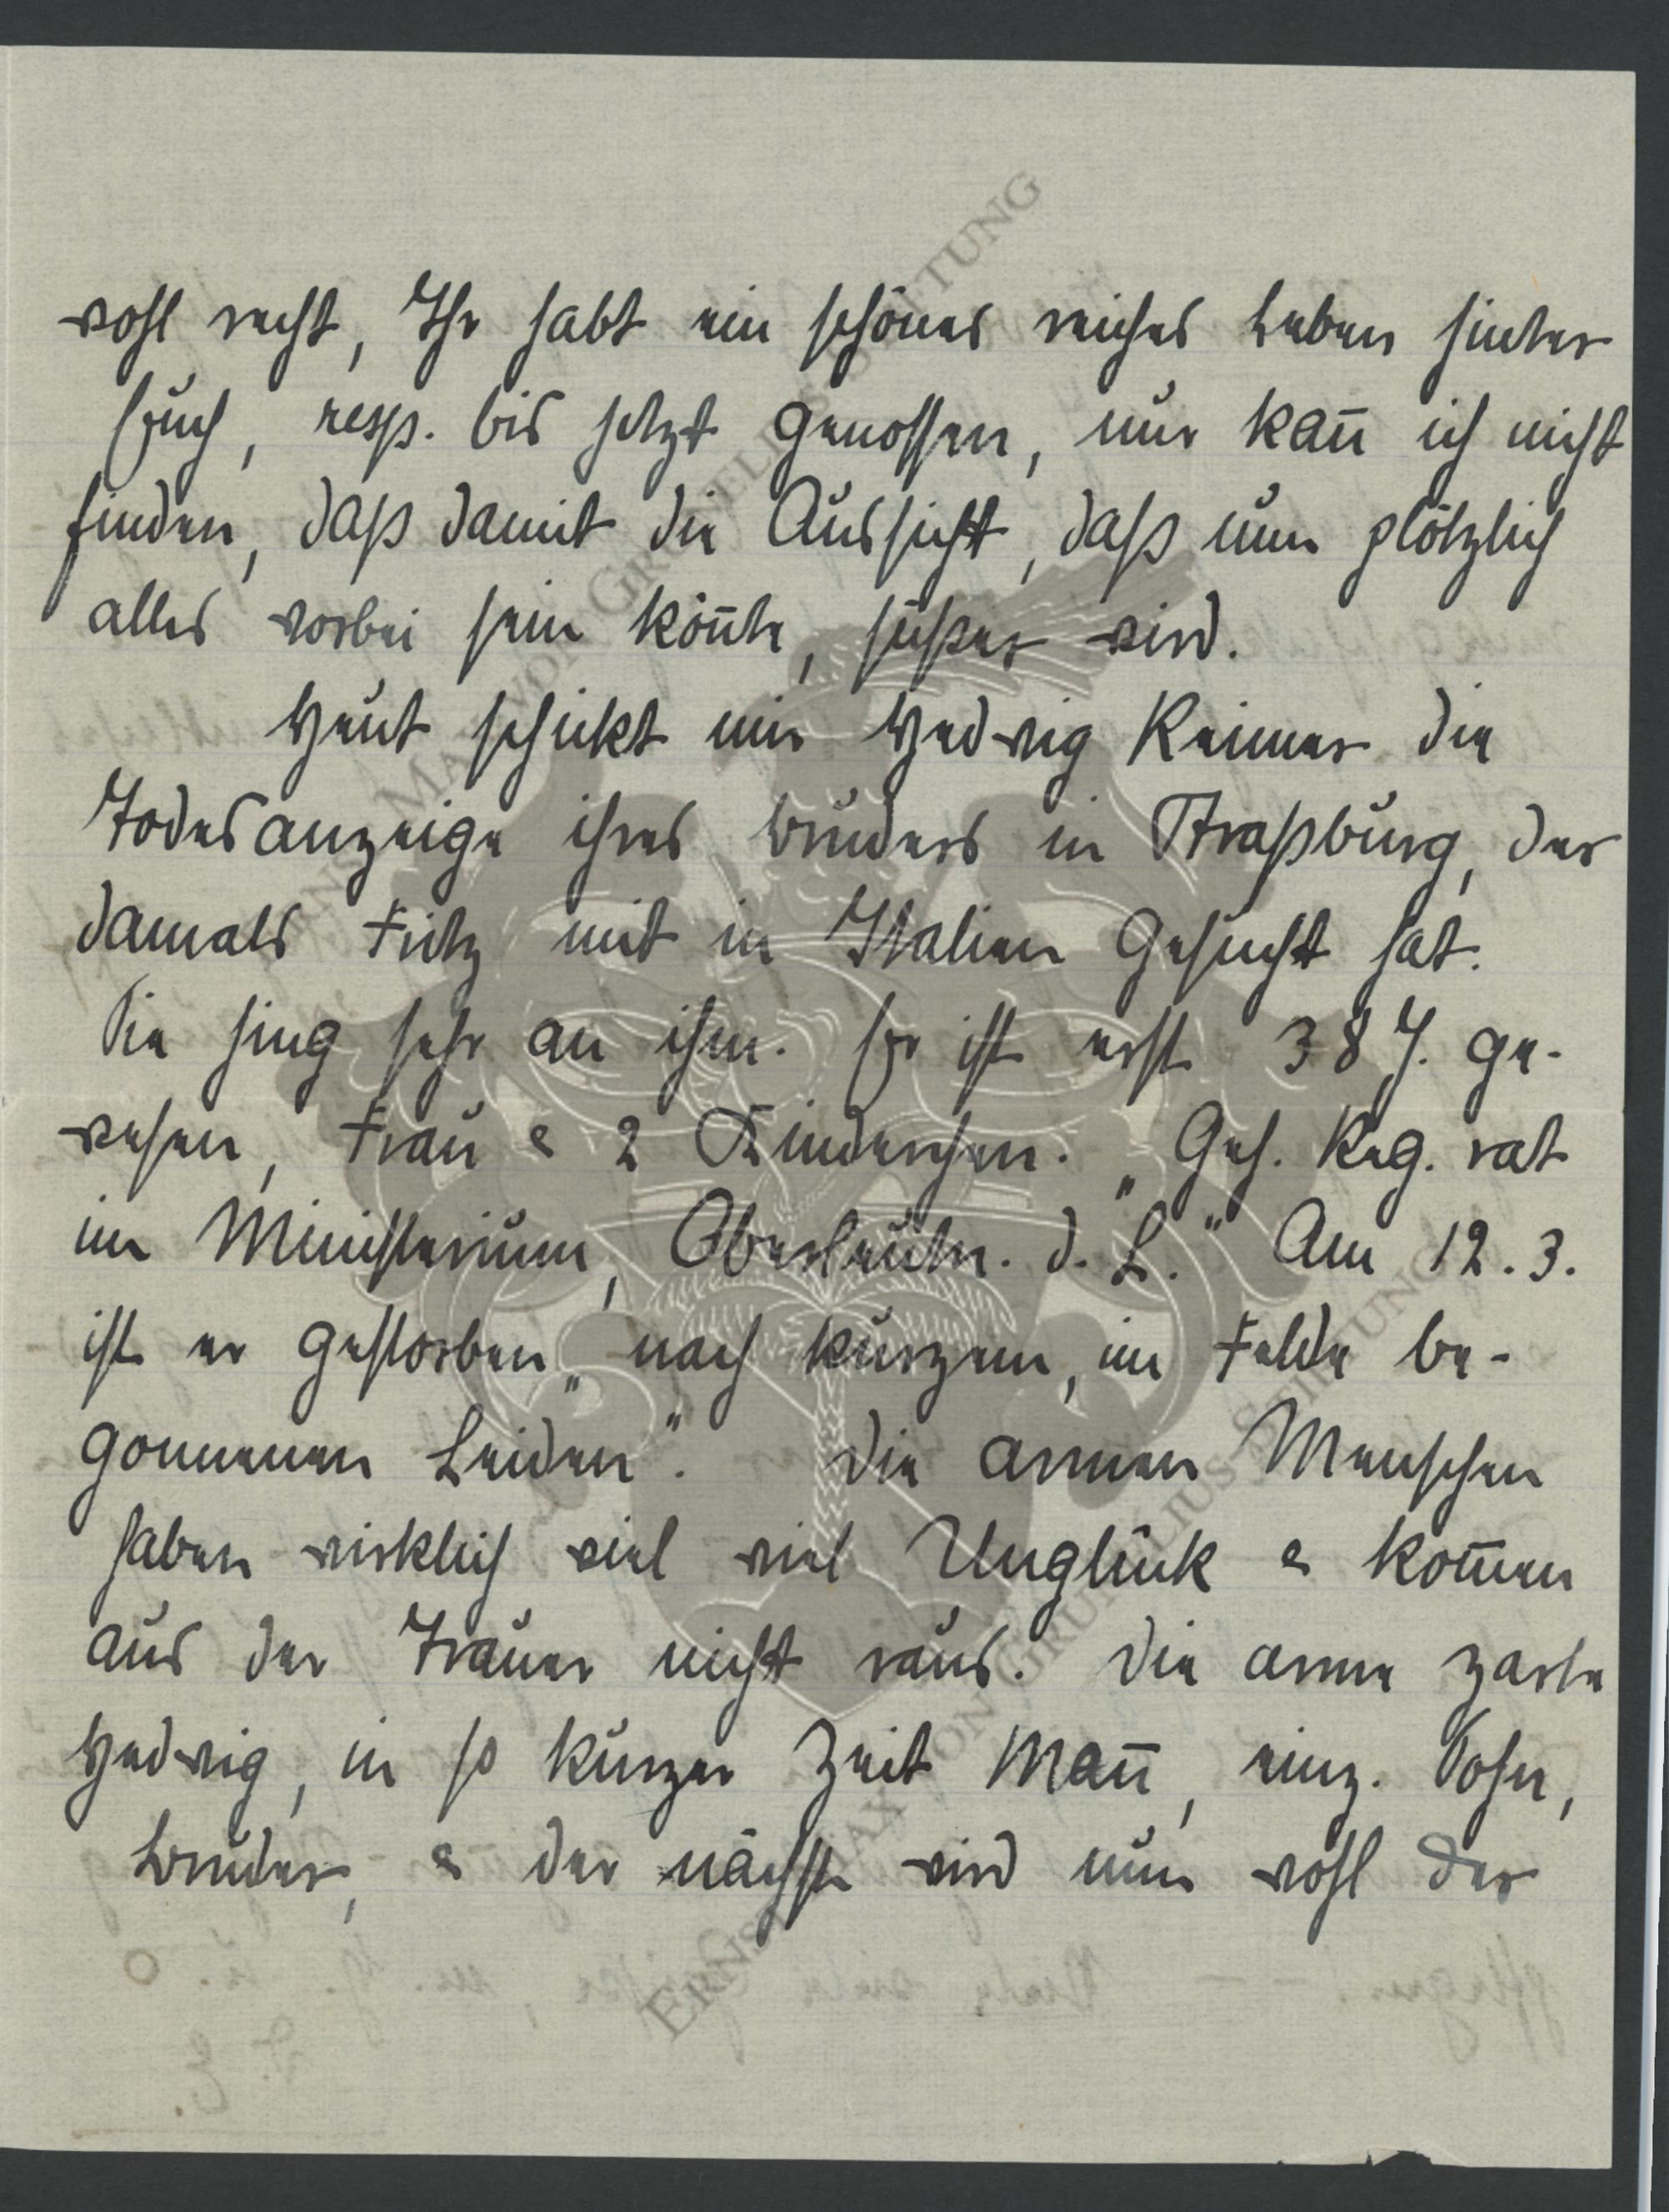 wohl recht, Ihr habt ein schönes reiches Leben hinter
Euch, resp. bis jetzt genossen, nur kan̄ ich nicht
finden, daß damit die Aussicht, daß nun plötzlich
alles vorbei sein kön̄te, süßer wird.
Heut schickt mir Hedwig Reimer die
Todesanzeige ihres Bruders in Straßburg, der
damals Fritz mit in Italien gesucht hat.
Sie hing sehr an ihm. Er ist erst 38 J. ge-
wesen, Frau & 2 Kinderchen. „Geh. Reg. rat
im Ministerium, Oberleutn. d. L." Am 12.3.
ist er gestorben „nach kurzem, im Felde be-
gonnenen Leiden". Die armen Menschen
haben wirklich viel viel Unglück & kom̄en
aus der Trauer nicht raus. Die arme zarte
Hedwig, in so kurzer Zeit Man̄, einz. Sohn,
Bruder, & der nächste wird nun wohl der
ERNST MAX VON GRUNELIUS STIFTUNG
ERNST MAX VON GRUNELIUS STIFTUNG